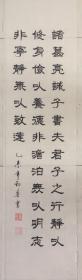 諸葛亮誡子書夫君子之行靜以
修身儉以養德非澹泊無以明志
非寧靜無以致遠
乙未年